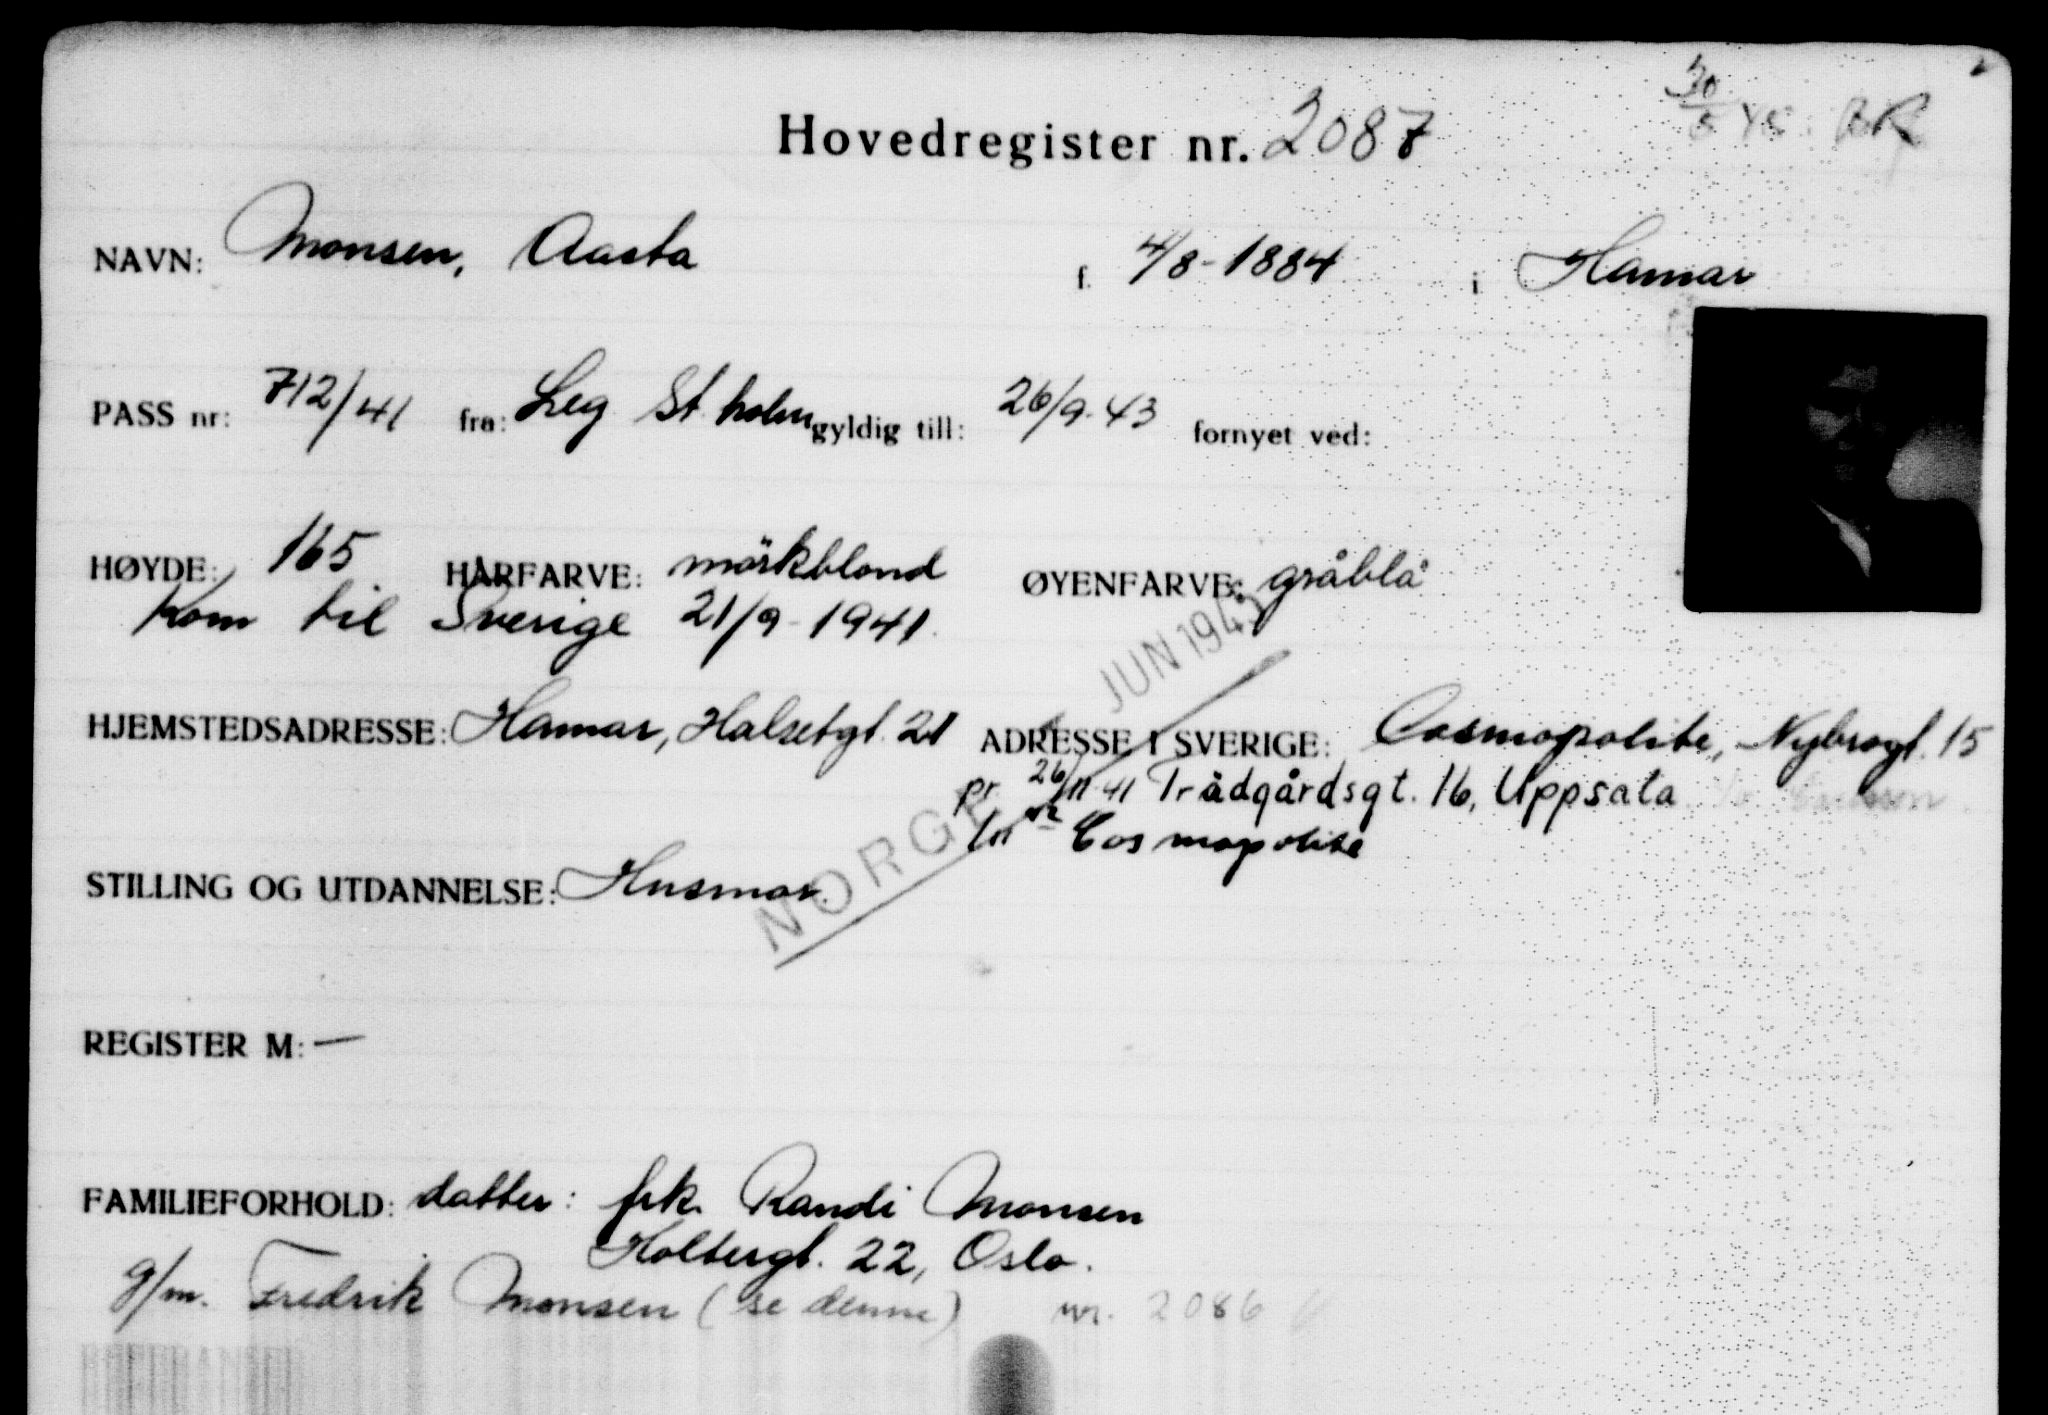 30/5 45.
Hovedregister nr. 2087
NAVN: Monsen, Aasta f. 4/8-1884 i Hamar
PASS nr: 712/41 fra: Leg St.holm gyldig till: 26/9-43 fornyet ved:
HØYDE: 165 HÅRFARVE: mörkblond ØYENFARVE: gråblå
Kom til Sverige 21/9-1941.
JUN 1945
HJEMSTEDSADRESSE: Hamar, Halsetgt. 21 ADRESSE I SVERIGE: Cosmopolite, Nybrogt. 15
pr. 26/11-41 Trädgårdsgt. 16, Uppsala
Cosmopolite
NORGE
STILLING OG UTDANNELSE: Husmor.
REGISTER M: —
FAMILIEFORHOLD: datter: frk. Randi Monsen
Holbergt. 22, Oslo.
g/m. Fredrik Monsen (se denne) nr. 2086